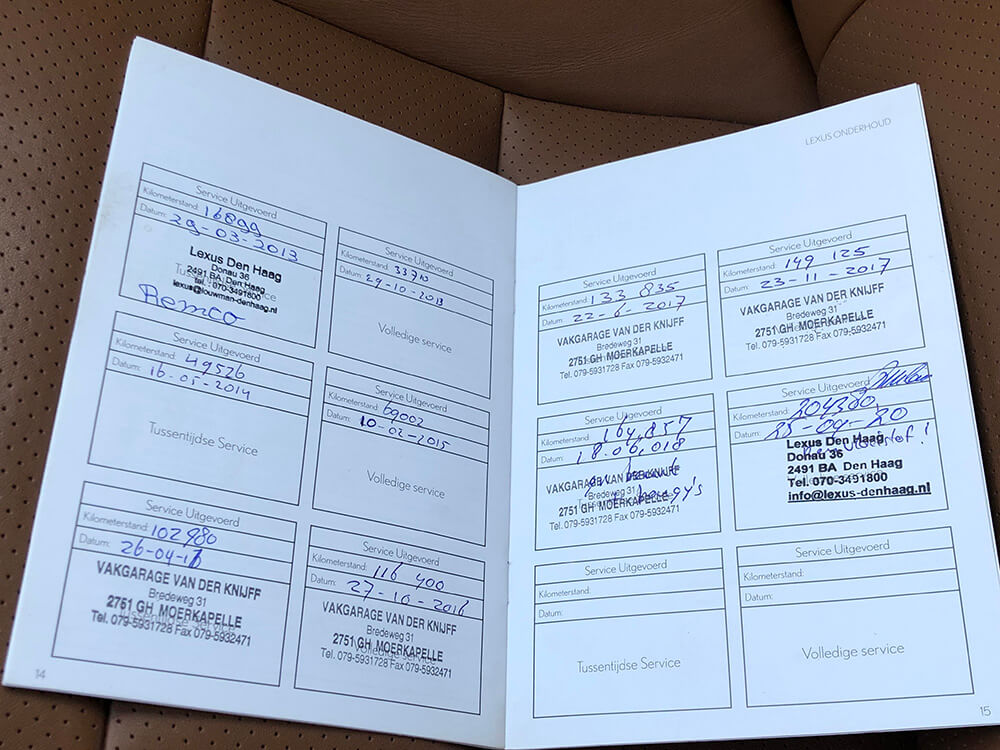 Service Uitgevoerd
Kilometerstand: 16899
Datum: 29-03-2013
Lexus Den Haag
Donau 36
2491 BA Den Haag
Tel. 070-3491800
lexus@louwman-denhaag.nl
Remco
Service Uitgevoerd
Kilometerstand:
Datum: 29-10-2013
Volledige service
Service Uitgevoerd
Kilometerstand: 49526
Datum: 16-05-2014
Tussentijdse Service
Service Uitgevoerd
Kilometerstand: 69002
Datum: 10-02-2015
Volledige service
Service Uitgevoerd
Kilometerstand: 102980
Datum: 26-04-16
VAKGARAGE VAN DER KNIJFF
Bredeweg 31
2751 GH MOERKAPELLE
Tel. 079-5931728 Fax 079-5932471
Service Uitgevoerd
Kilometerstand: 116 400
Datum: 27-10-2016
VAKGARAGE VAN DER KNIJFF
Bredeweg 31
2751 GH MOERKAPELLE
Tel. 079-5931728 Fax 079-5932471
14
LEXUS ONDERHOUD
Service Uitgevoerd
Kilometerstand: 133 835
Datum: 22-6-2017
VAKGARAGE VAN DER KNIJFF
Bredeweg 31
2751 GH MOERKAPELLE
Tel. 079-5931728 Fax 079-5932471
Service Uitgevoerd
Kilometerstand: 149 125
Datum: 23-11-2017
VAKGARAGE VAN DER KNIJFF
Bredeweg 31
2751 GH MOERKAPELLE
Tel. 079-5931728 Fax 079-5932471
Service Uitgevoerd
Kilometerstand: 164,857
Datum: 18.06.018
VAKGARAGE VAN DER KNIJFF
Bredeweg 31
2751 GH MOERKAPELLE
Tel. 079-5931728 Fax 079-5932471
Service Uitgevoerd
Kilometerstand: 204380
Datum: 25-09-20
Lexus Den Haag
Donau 36
2491 BA Den Haag
Tel. 070-3491800
info@lexus-denhaag.nl
Service Uitgevoerd
Kilometerstand:
Datum:
Tussentijdse Service
Service Uitgevoerd
Kilometerstand:
Datum:
Volledige service
15